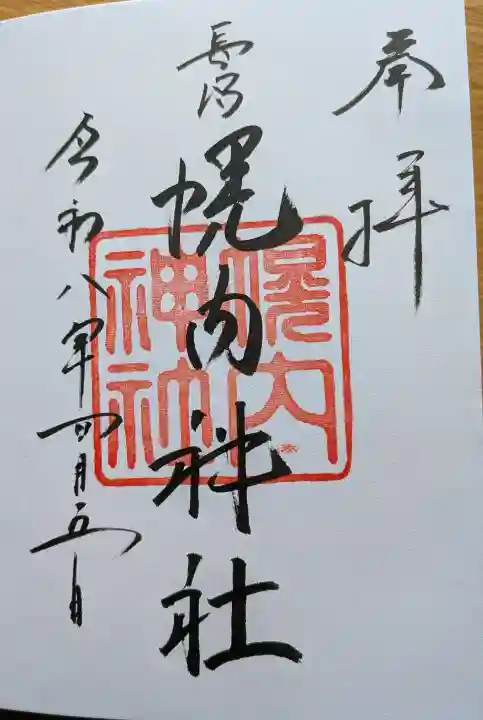 奉拝
長沼
幌内神社
幌内
神社
令和八年四月五日